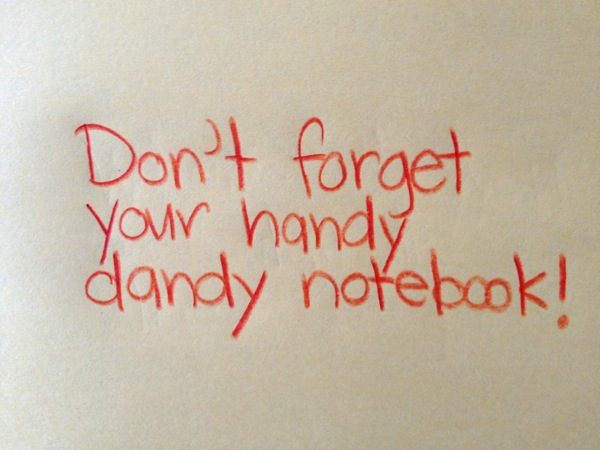 Don't forget
your handy
dandy notebook!